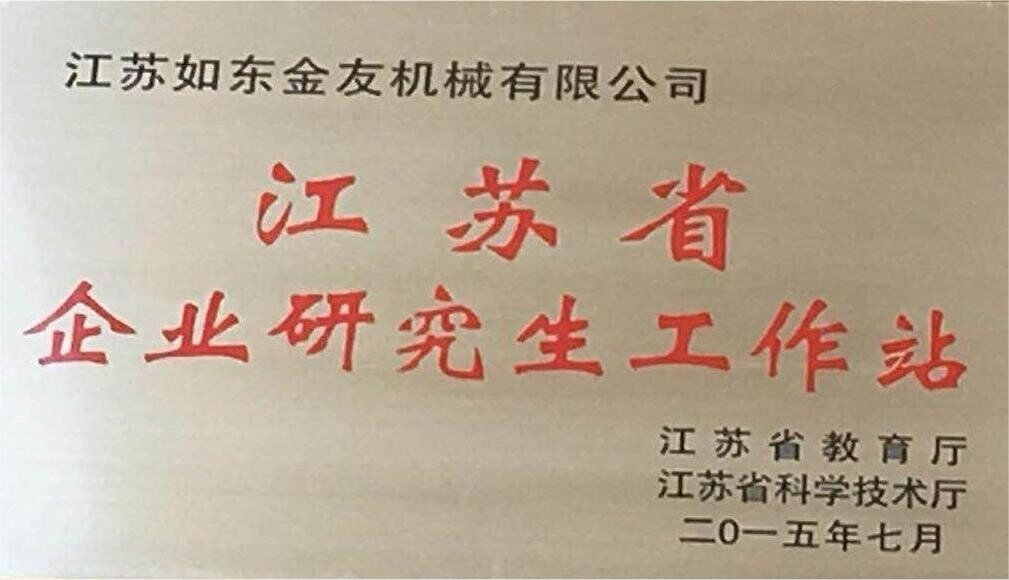 江苏如东金友机械有限公司
江苏省
企业研究生工作站
江苏省教育厅
江苏省科学技术厅
二〇一五年七月